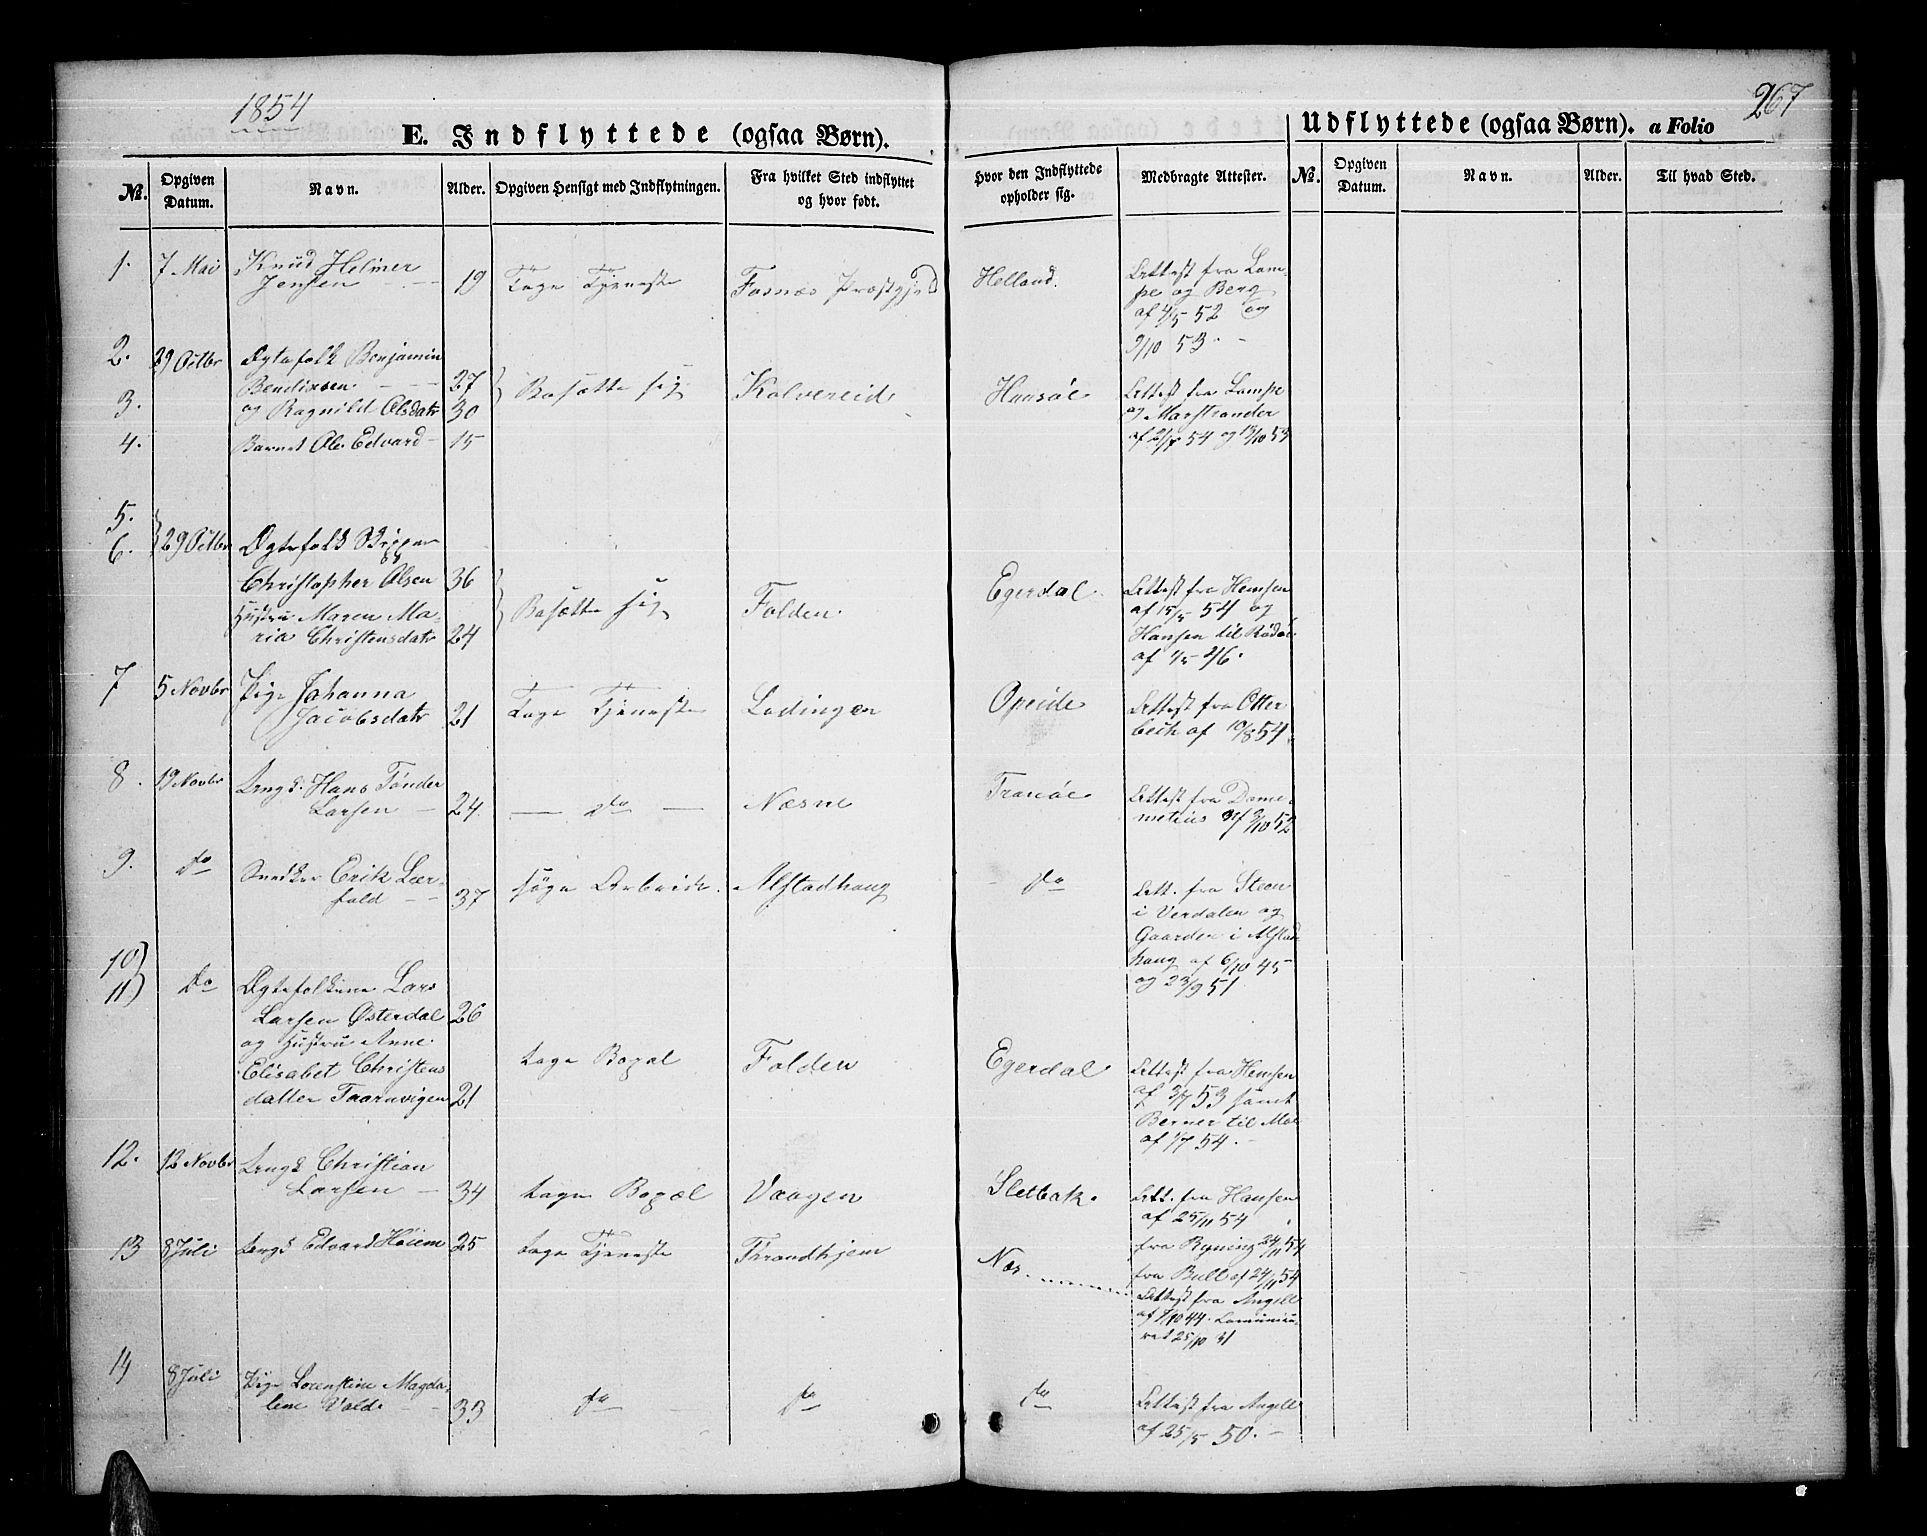 1854
267
E. Indflyttede (ogsaa Børn).
Udflyttede (ogsaa Børn). a Folio
№. Opgiven Datum. Navn. Alder. Opgiven Hensigt med Indflytningen. Fra hvilket Sted indflyttet og hvor født. Hvor den Indflyttede opholder sig. Medbragte Attester. №. Opgiven Datum. Navn. Alder. Til hvad Sted.
1. 7 Mai Knud Helmer
Jensen 19 Tage Tjeneste Fosnæs Præstgjeld Helland. Attest fra Lam-
pe og Berg
af 4/5 52 og
9/10 53.
2. 29 Octbr Ægtefolk Benjamin
Bendixsen 27 Bosætte sig Kolvereid Hansøe Attest fra Lampe
3. og Ragnild Olsdatr 30 og Marstrander
4. Barnet Ole Edvard 15 af 2/7 54 og 13/10 53
5.
6. 29 Octbr Ægtefolk Skipper
Christopher Olsen 36
Hustru Maren Ma-
ria Christensdatr 24 Bosætte sig Folden. Egerdal Attest fra Hemsen
af 15/5 54 og
Hansen til Rødøe
af 1/5 46.
7 5 Novbr Pige Johanna
Jacobsdatr 21 Tage Tjeneste Lodingen Opeide Attest fra Otter
bech af 10/8 54.
8. 19 Novbr Ungk. Hans Tønder
Larsen 24. do Næsne Tranøe Attest fra Dame-
metius af 3/10 52
9. do Snedker Erik Lær-
fald 37 søge Arbeide. Alstadhaug do Att. fra Steen
i Verdalen og
Gaarder i Alstad
haug af 6/10 45
og 23/9 51
10
11 do Ægtefolkene Lars
Larsen Østerdal 26
og Hustru Anne
Elisabet Christens
datter Taarnvigen 21 tage Bopæl Folden Egerdal Attest fra Hemsen
af 3/7 53 samt
Berner til Moe
af 1/7 54.
12. 12 Novbr Ungk Christian
Larsen 34 tage Bopæl Vaagen Sletbak. Att. fra Hansen
af 25/11 54
13 8 Juli Ungk Edvard Høiem 25 tage Tjeneste Throndhjem Næs fra Rynning 24/11 54
fra Bull af 24/11 54
Attest fra Angell
af 7/10 44. Comunice-
ret 25/10 31
14 8 Juli Pige Lorenstine Magda-
lene Vold 33 do do do Attest fra Angell
af 25/5 50.